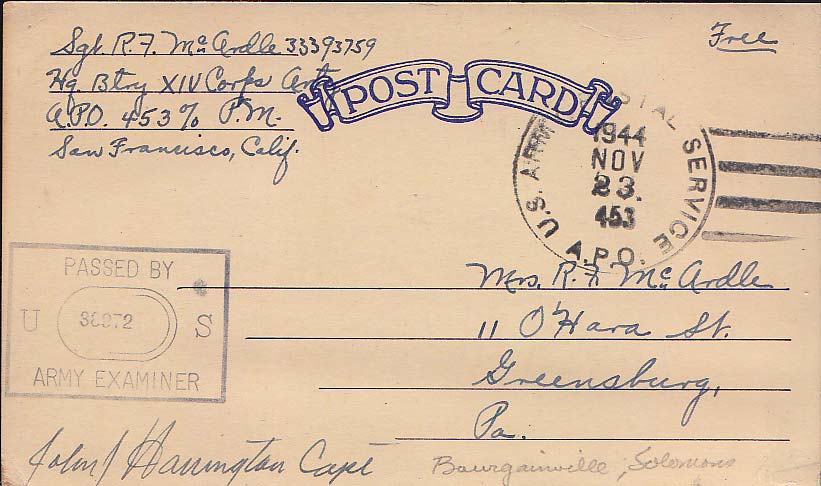 Sgt. R. F. McArdle 33393759
Free
Hq. Btry XIV Corps Arty
A.P.O. 453 % P.M.
San Francisco, Calif.
POST CARD
U.S. ARMY POSTAL SERVICE
1944
NOV
23.
453
A.P.O.
PASSED BY
U 38972 S
ARMY EXAMINER
Mrs. R. F. McArdle
11 O'Hara St.
Greensburg,
Pa.
John J Harrington Capt
Bourgainville, Solomons